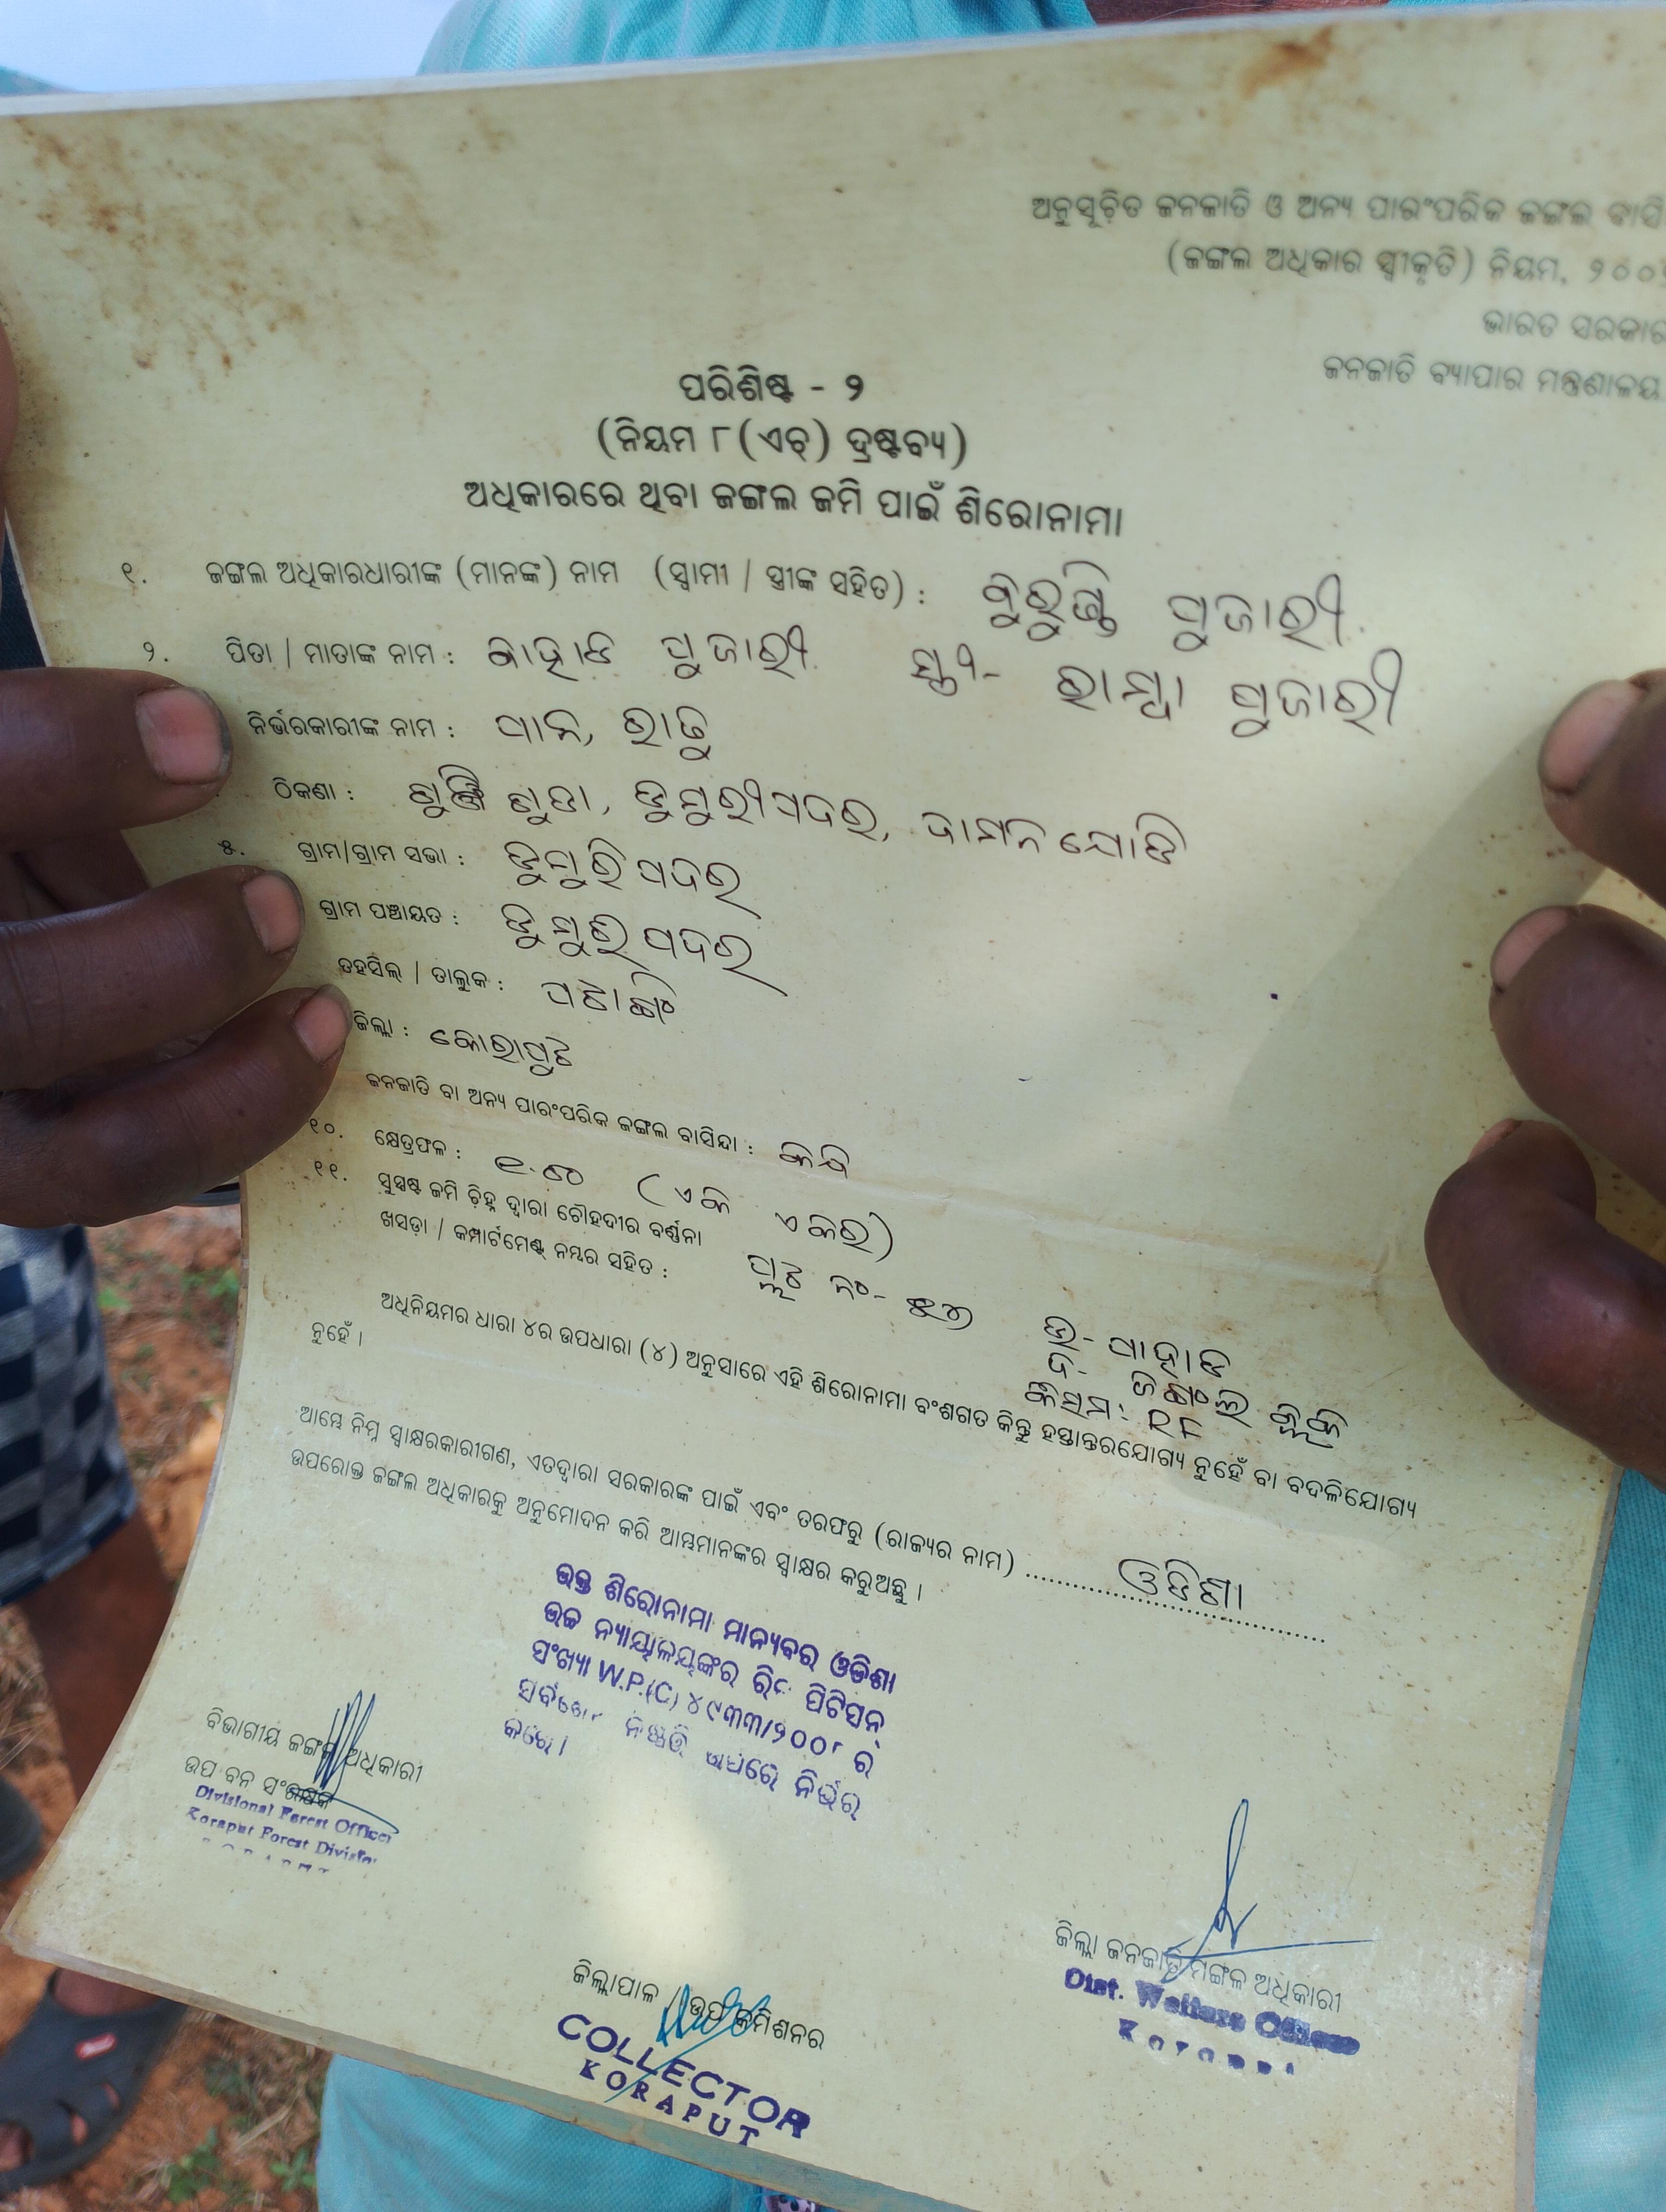 ଅନୁସୂଚିତ ଜନଜାତି ଓ ଅନ୍ୟ ପାରଂପରିକ ଜଙ୍ଗଲ ବାସି
(ଜଙ୍ଗଲ ଅଧିକାର ସ୍ୱୀକୃତି) ନିୟମ, ୨୦୦
ଭାରତ ସରକାର
ଜନଜାତି ବ୍ୟାପାର ମନ୍ତ୍ରଣାଳୟ
ପରିଶିଷ୍ଟ - ୨
(ନିୟମ ୮(ଏଚ୍) ଦ୍ରଷ୍ଟବ୍ୟ)
ଅଧିକାରରେ ଥିବା ଜଙ୍ଗଲ ଜମି ପାଇଁ ଶିରୋନାମା
୧. ଜଙ୍ଗଲ ଅଧିକାରଧାରୀଙ୍କ (ମାନଙ୍କ) ନାମ (ସ୍ୱାମୀ / ସ୍ତ୍ରୀଙ୍କ ସହିତ) : ପୁଜାରୀ
୨. ପିତା / ମାତାଙ୍କ ନାମ : ପୁଜାରୀ ସ୍ତ୍ରୀ- ପୁଜାରୀ
ନିର୍ଭରକାରୀଙ୍କ ନାମ :
ଠିକଣା : ଗୁଡା, ଡୁମୁରୀପଦର, ଦାମନଯୋଡି
୫. ଗ୍ରାମ/ଗ୍ରାମ ସଭା : ଡୁମୁରିପଦର
ଗ୍ରାମ ପଞ୍ଚାୟତ : ଡୁମୁରିପଦର
ତହସିଲ୍ / ତାଲୁକ : ପଟାଙ୍ଗି
ଜିଲ୍ଲା : କୋରାପୁଟ
ଜନଜାତି ବା ଅନ୍ୟ ପାରଂପରିକ ଜଙ୍ଗଲ ବାସିନ୍ଦା :
୧୦. କ୍ଷେତ୍ରଫଳ : (ଏକ ଏକର)
୧୧. ସୁସ୍ପଷ୍ଟ ଜମି ଚିହ୍ନ ଦ୍ୱାରା ଚୌହଦୀର ବର୍ଣ୍ଣନା
ଖସଡ଼ା / କମ୍ପାର୍ଟମେଣ୍ଟ୍ ନମ୍ବର ସହିତ : ପ୍ଲଟ ନଂ- ଉ- ପାହାଡ
ଦ. ଜଙ୍ଗଲ
କିସମ:
ଅଧିନିୟମର ଧାରା ୪ର ଉପଧାରା (୪) ଅନୁସାରେ ଏହି ଶିରୋନାମା ବଂଶଗତ କିନ୍ତୁ ହସ୍ତାନ୍ତରଯୋଗ୍ୟ ନୁହେଁ ବା ବଦଳିଯୋଗ୍ୟ
ନୁହେଁ ।
ଆମ୍ଭେ ନିମ୍ନ ସ୍ୱାକ୍ଷରକାରୀଗଣ, ଏତଦ୍ୱାରା ସରକାରଙ୍କ ପାଇଁ ଏବଂ ତରଫରୁ (ରାଜ୍ୟର ନାମ) ........ ଓଡିଶା
ଉପରୋକ୍ତ ଜଙ୍ଗଲ ଅଧିକାରକୁ ଅନୁମୋଦନ କରି ଆମ୍ଭମାନଙ୍କର ସ୍ୱାକ୍ଷର କରୁଅଛୁ ।
ଉକ୍ତ ଶିରୋନାମା ମାନ୍ୟବର ଓଡିଶା
ଉଚ୍ଚ ନ୍ୟାୟାଳୟଙ୍କର ରିଟ ପିଟିସନ୍
ସଂଖ୍ୟା W.P.(C) ୪୯୩୩/୨୦୦୮ ର
ନିଷ୍ପତ୍ତି ଉପରେ ନିର୍ଭର
କରେ।
ବିଭାଗୀୟ ଜଙ୍ଗଲ ଅଧିକାରୀ
ଉପ ବନ ସଂରକ୍ଷକ
Divisional Forest Officer
Koraput Forest Division
ଜିଲ୍ଲା ଜନଜାତି ମଙ୍ଗଳ ଅଧିକାରୀ
Dist. Welfare Officer
ଜିଲ୍ଲାପାଳ / ଉପ କମିଶନର
COLLECTOR
KORAPUT